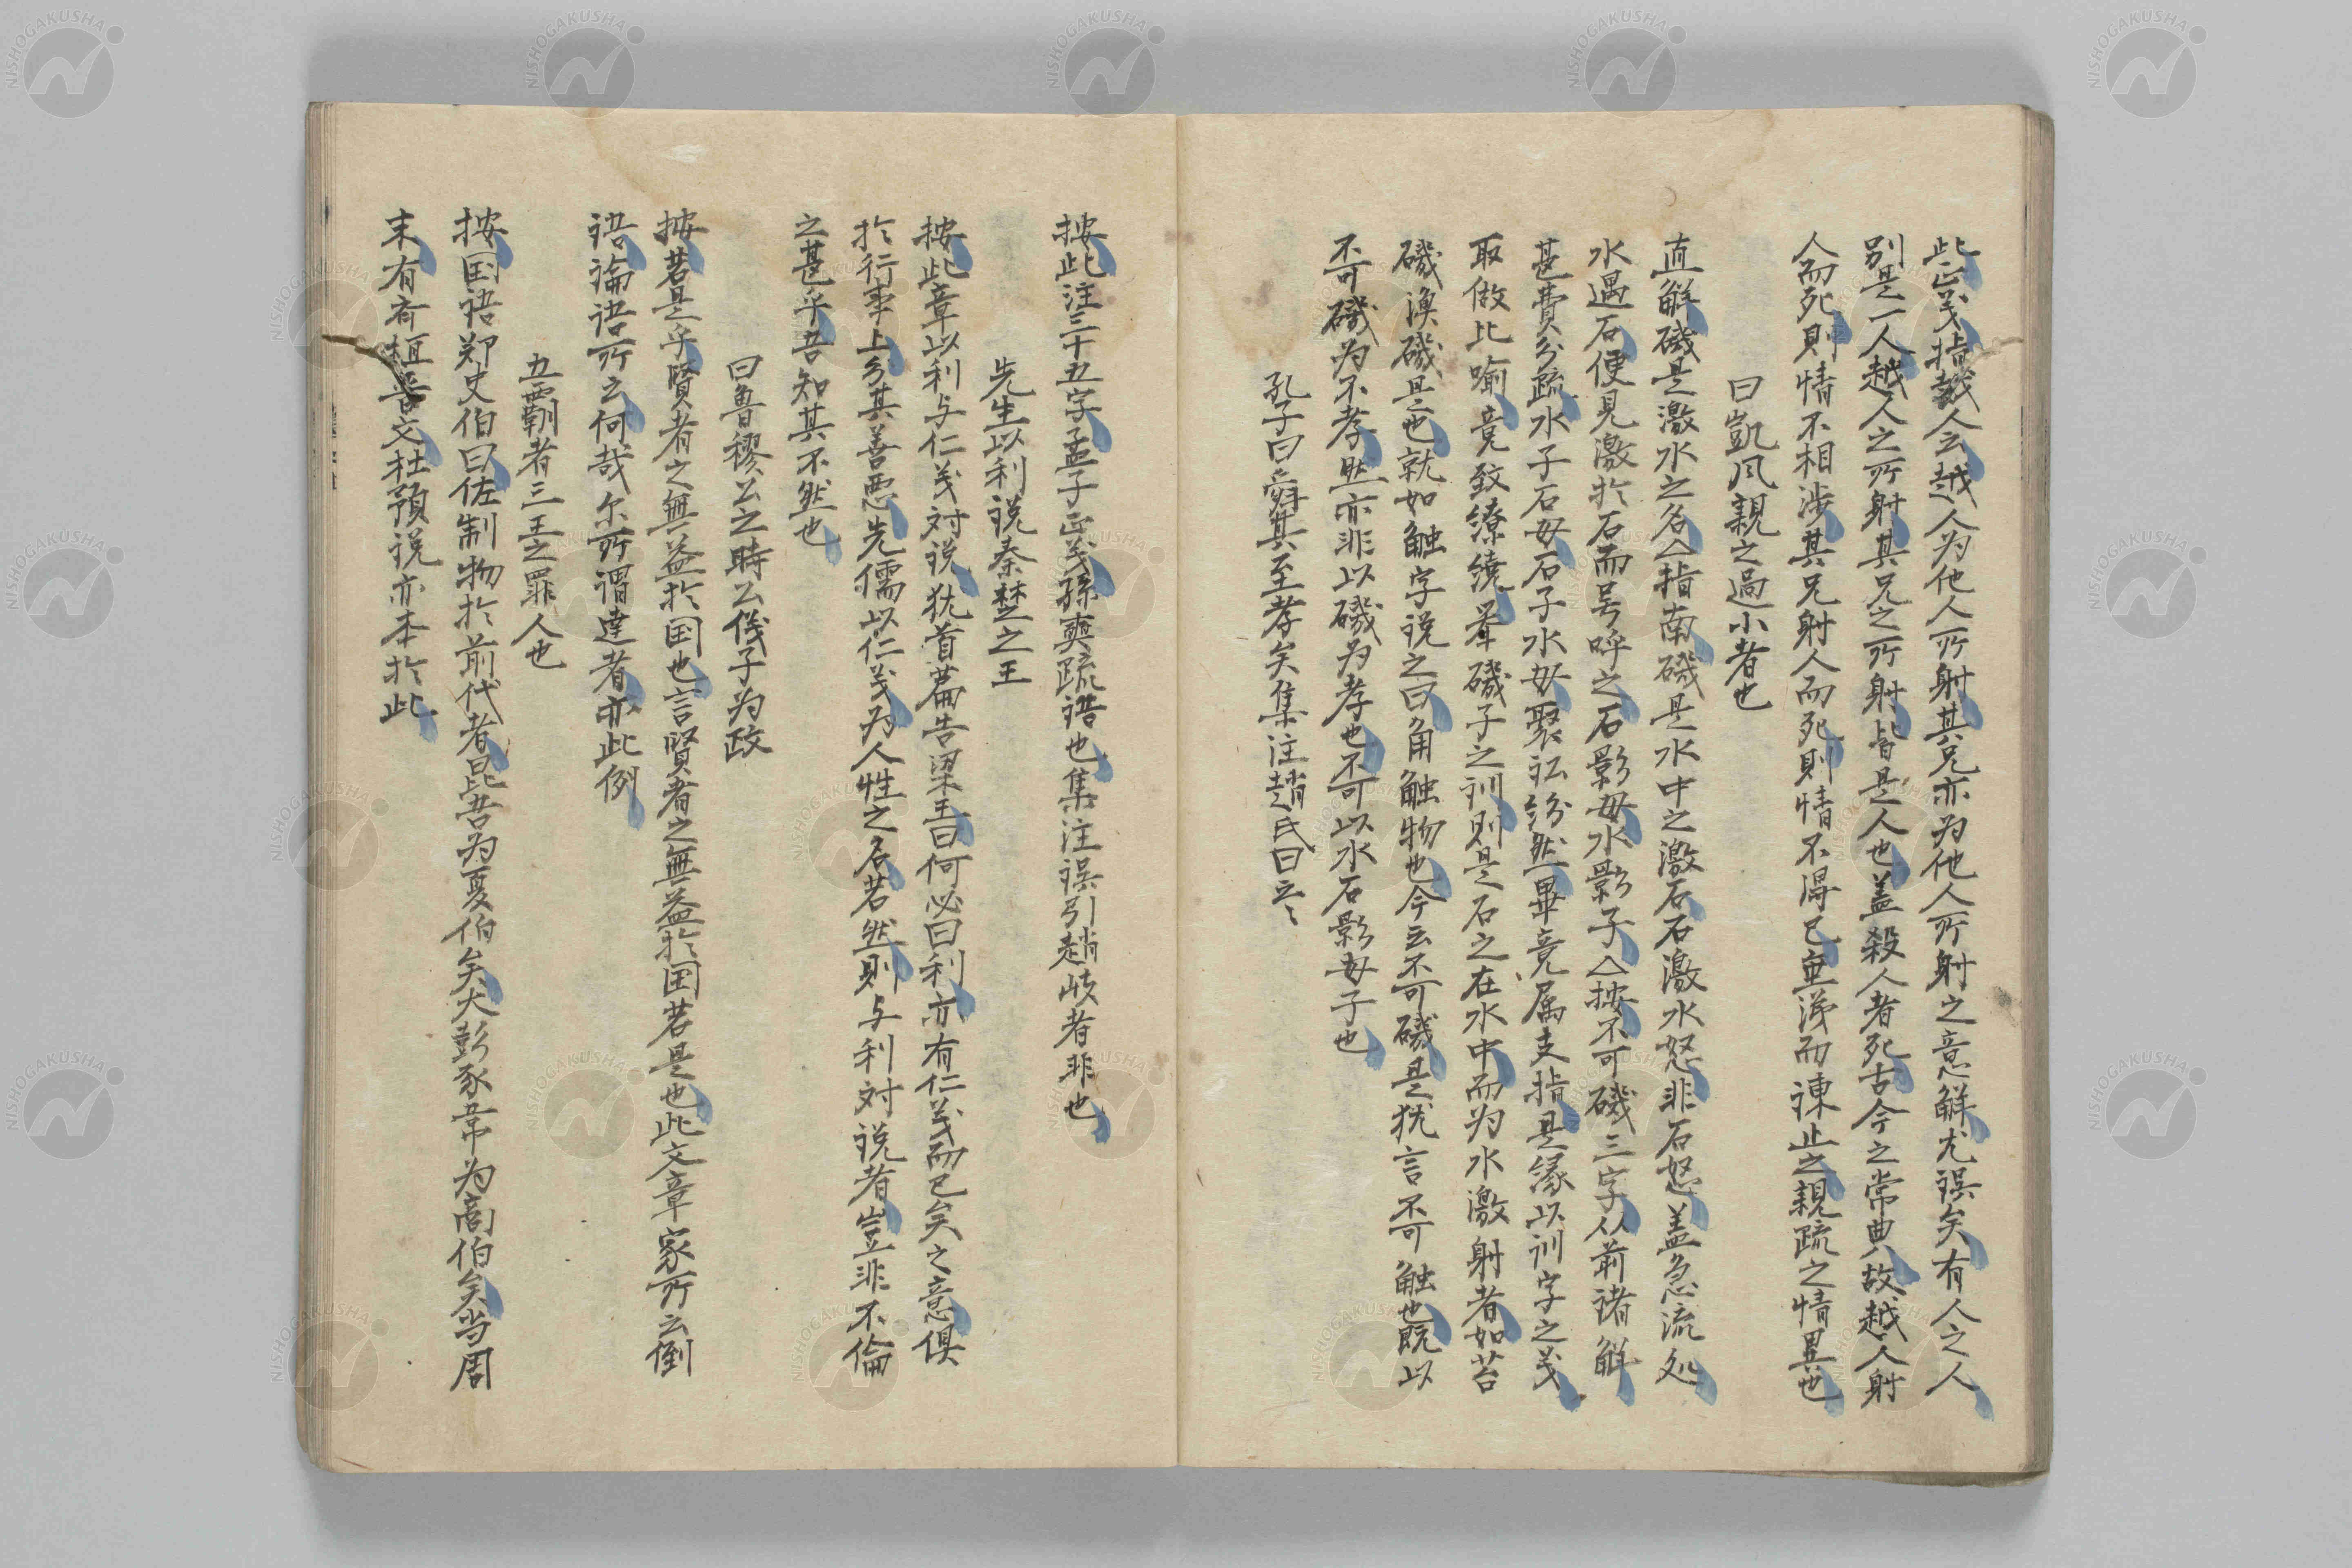 此正義指越人云越人为他人所射其兄亦为他人所射之意解尤誤矣有人之人
別是一人越人之所射其兄之所射皆是人也盖殺人者死古今之常典故越人射
人而死則情不相涉其兄射人而死則情不得已垂涕而諫止之親疏之情異也
曰凱风親之過小者也
直解磯是激水之名△指南磯是水中之激石石激水怒非石怒盖急流处
水遇石便見激於石而号呼之石影母水影子△按不可磯三字从前诸解
甚費分疏水子石母石子水母聚讼纷然畢竟属支指是缘以训字之义
取做比喻竟致缭繞羣磯子之训則是石之在水中而为水激射者如苔
磯漁磯是也就如触字说之曰角触物也今云不可磯是犹言不可触也既以
不可磯为不孝然亦非以磯为孝也不可以水石影母子也
孔子曰舜其至孝矣集注趙氏曰云〻
按此注三十五字孟子正義孫奭疏语也集注误引趙岐者非也
先生以利说秦楚之王
按此章以利与仁義对说犹首篇告梁王曰何必曰利亦有仁義而已矣之意俱
於行事上分其善悪先儒以仁義为人性之名若然則与利对说者豈非不倫
之甚乎吾知其不然也
曰魯穆公之時公儀子为政
按若是乎賢者之無益於国也言賢者之無益於国若是也此文章家所云倒
语論语所云何哉尔所謂達者亦此例
五覇者三王之罪人也
按国语郑史伯曰佐制物於前代者昆吾为夏伯矣大彭豕韋为商伯矣当周
末有斉桓晋文杜預说亦本於此